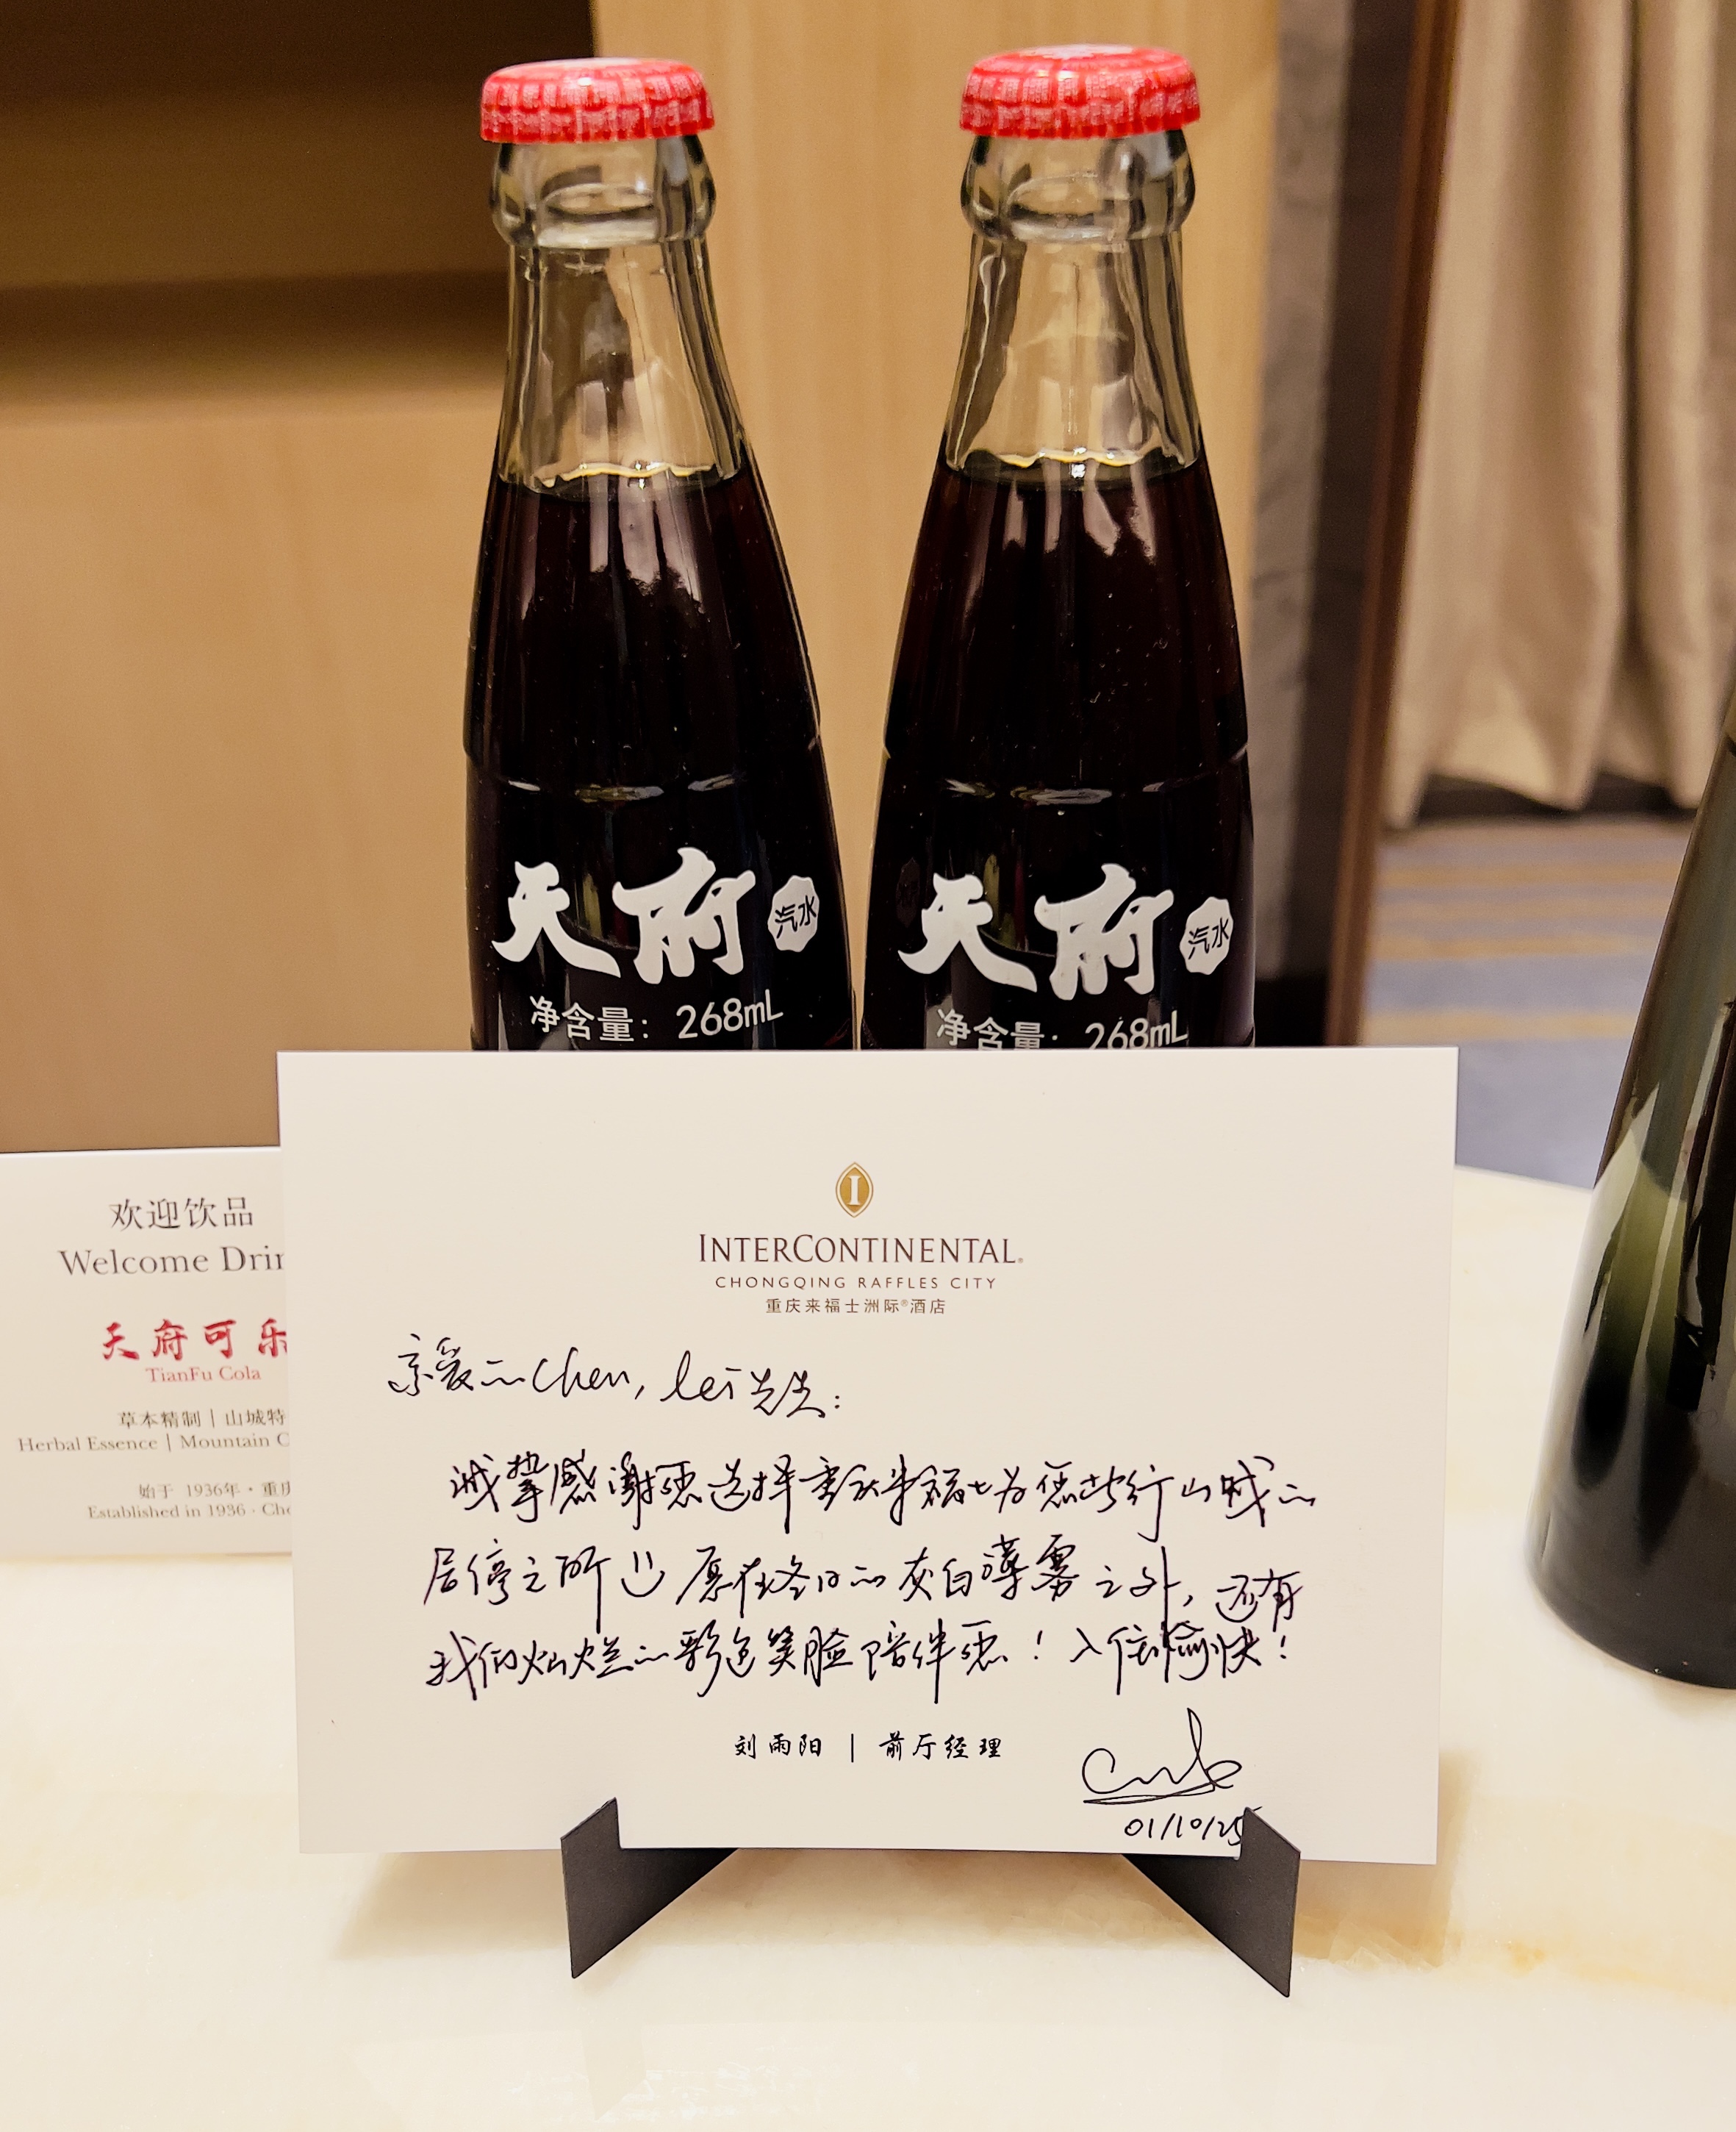 天府 汽水
净含量：268mL
天府 汽水
净含量：268mL
欢迎饮品
Welcome Drin
天府可乐
TianFu Cola
草本精制 | 山城特
Herbal Essence | Mountain C
始于 1936年·重庆
Established in 1936 · Cho
I
INTERCONTINENTAL®
CHONGQING RAFFLES CITY
重庆来福士洲际®酒店
亲爱的Chen, Lei 先生：
诚挚感谢您选择重庆来福士为您此行山城的
居停之所 愿在冬日的灰白薄雾之外，还有
我们灿烂的彩色笑脸陪伴您！入住愉快！
刘雨阳 | 前厅经理
01/10/25